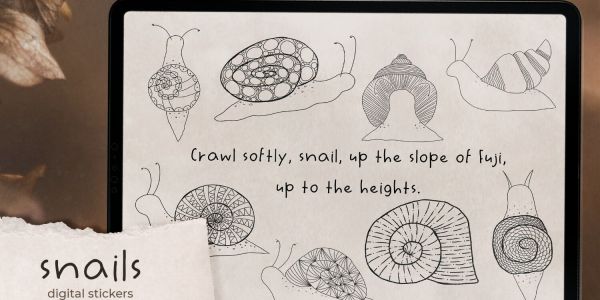 Crawl softly, snail, up the slope of Fuji,
up to the heights.
snails
digital stickers